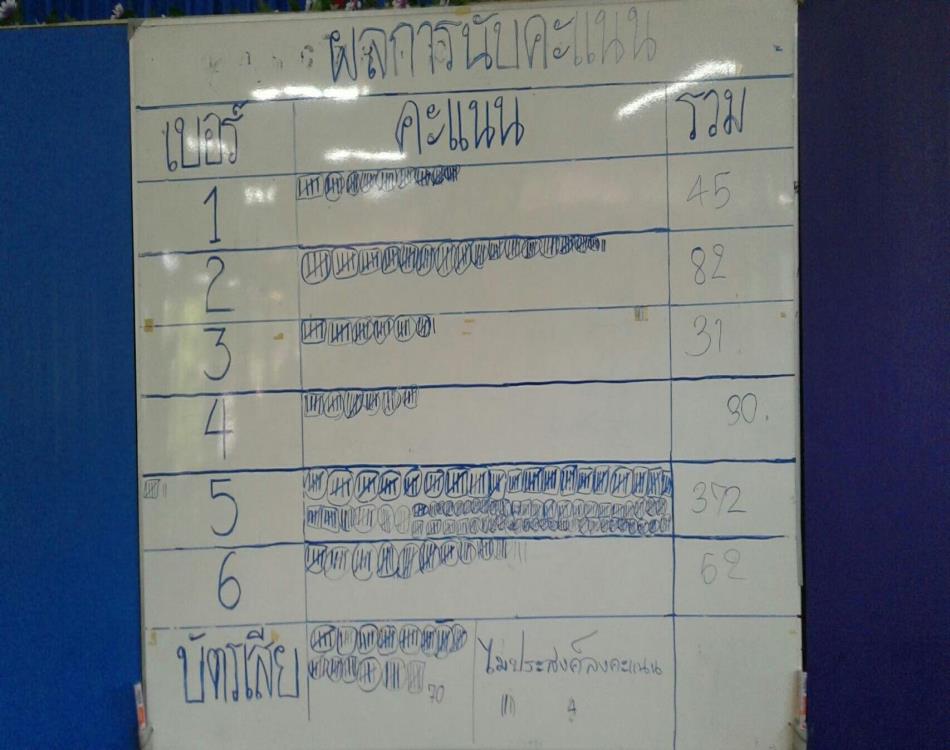 ผลการนับคะแนน
เบอร์ คะแนน รวม
1 45
2 82
3 31
4 30.
5 372
6 52
บัตรเสีย 70 ไม่ประสงค์ลงคะแนน
4